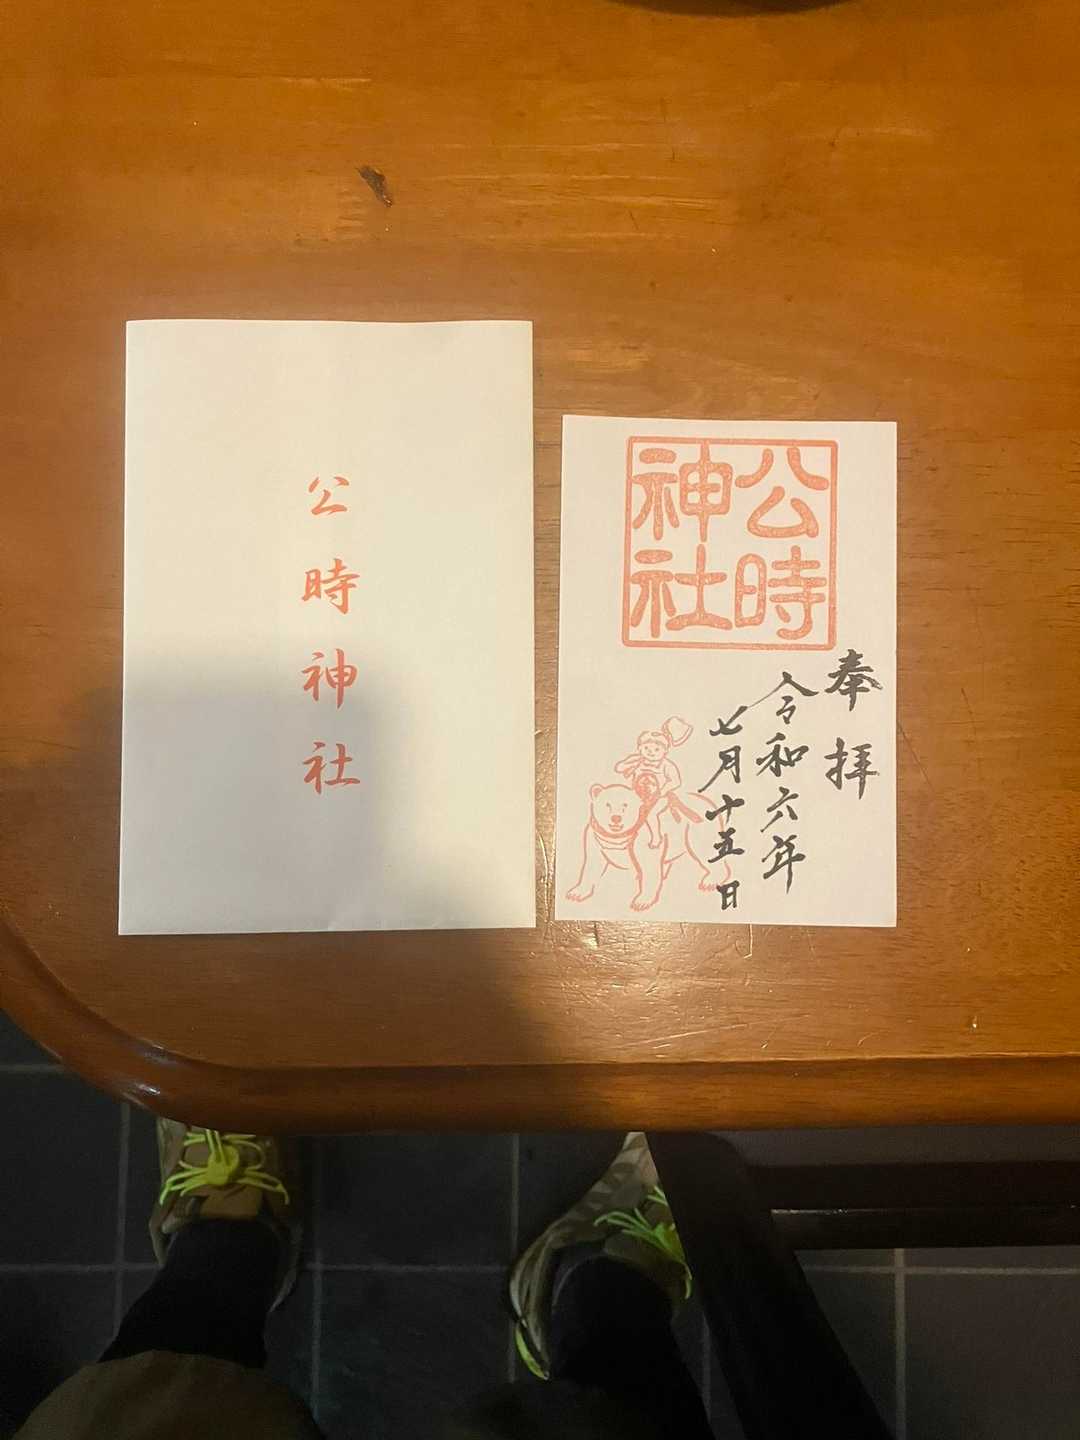 公時神社
公時
神社
奉拝
令和六年
七月十五日